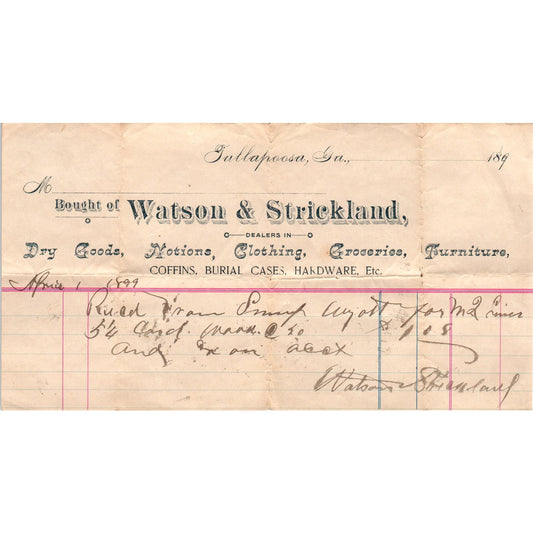 Tallapoosa, Ga., 189
M
Bought of Watson & Strickland,
DEALERS IN
Dry Goods, Notions, Clothing, Groceries, Furniture,
COFFINS, BURIAL CASES, HARDWARE, Etc.
April 1 1899
Rec'd from for
5 1/4 Cord Wood @ 20 $1.05
and on acct
Watson & Strickland